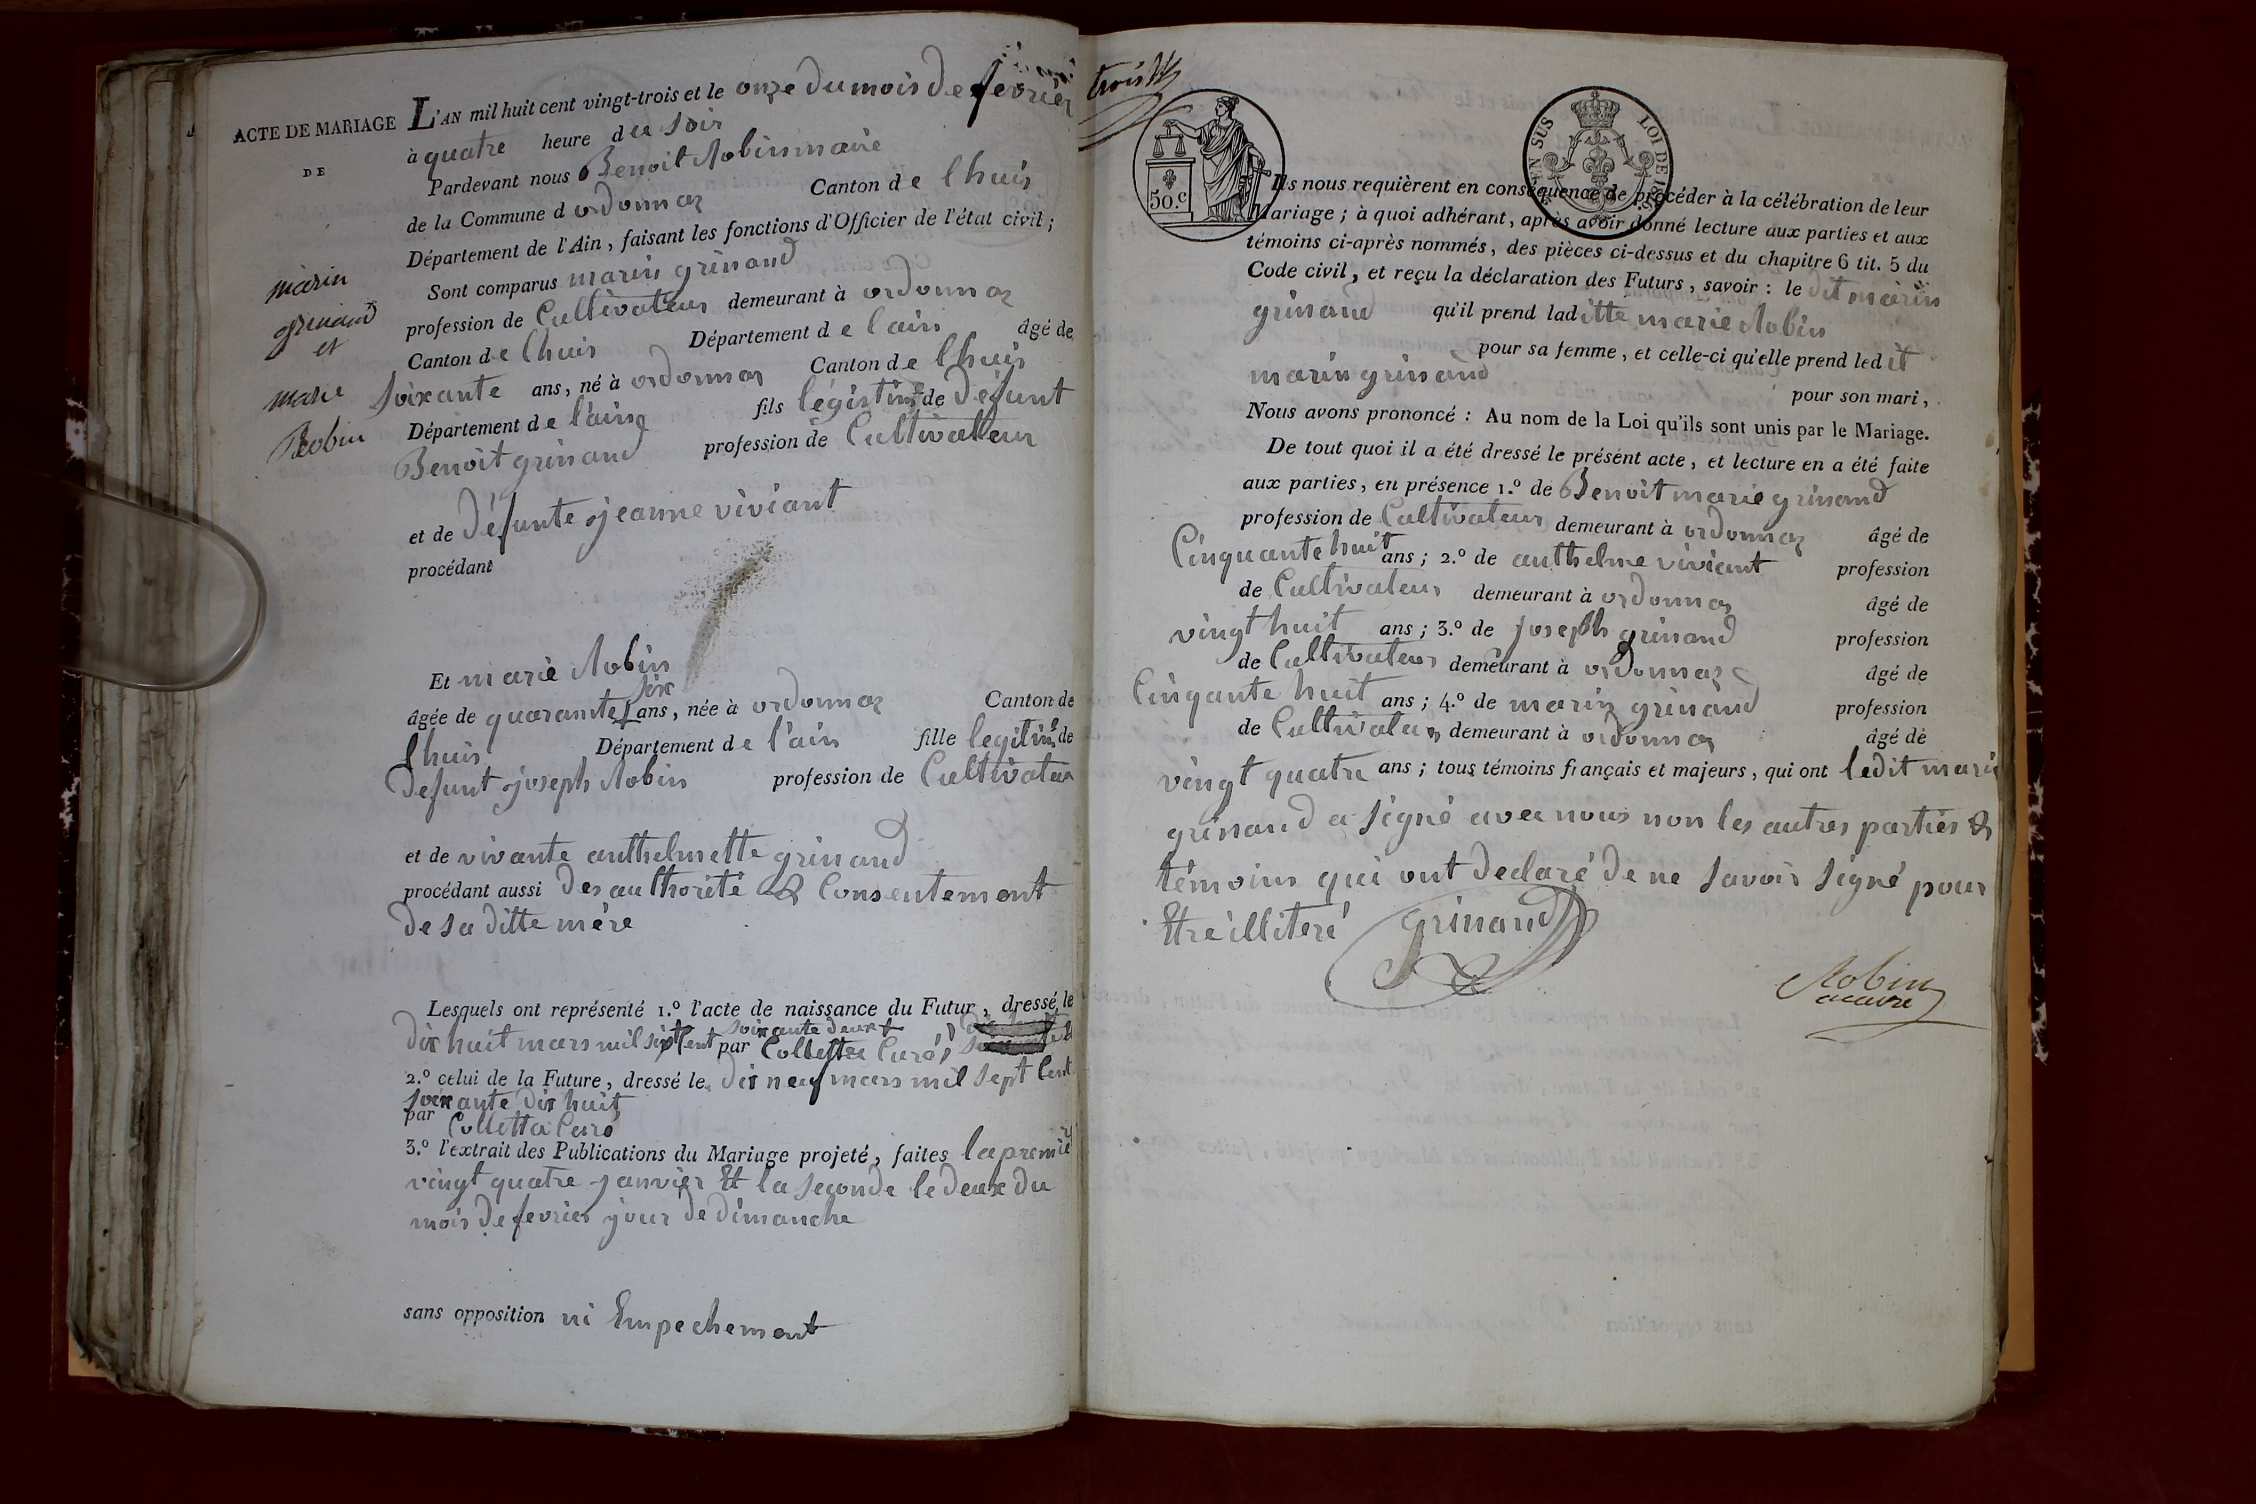 ACTE DE MARIAGE
DE
marin
grinand
et
marie
Robin
L'AN mil huit cent vingt-trois et le onze du mois de fevrier
à quatre heure du soir
Pardevant nous Benoit Robin maire
de la Commune d ordonnaz Canton de lhuis
Département de l'Ain, faisant les fonctions d'Officier de l'état civil;
Sont comparus marin grinand
profession de Cultivateur demeurant à ordonnaz
Canton de lhuis Département de lain âgé de
soixante ans, né à ordonnaz Canton de lhuis
Département de l'ain fils légistime de défunt
Benoit grinand profession de Cultivateur
et de défunte jeanne viviant
procédant
Et marie Robin
âgée de quarante six ans, née à ordonnaz Canton de
lhuis Département de l'ain fille legitime de
defunt joseph Robin profession de Cultivateur
et de vivante anthelmette grinand
procédant aussi des authorité & Consentement
de sa ditte mère
Lesquels ont représenté 1.º l'acte de naissance du Futur, dressé le
dix huit mars mil sept Cent soixante deux par Colletta Curé
2.º celui de la Future, dressé le dix neuf mars mil sept Cent
soixante dix huit
par Colletta Curé
3.º l'extrait des Publications du Mariage projeté, faites la premiere
vingt quatre janvier Et la seconde le deux du
mois de fevrier jour de dimanche
sans opposition ni Empechement
trois
50.c
EN SUS
LOI DE 1816.
Ils nous requièrent en conséquence de procéder à la célébration de leur
Mariage; à quoi adhérant, après avoir donné lecture aux parties et aux
témoins ci-après nommés, des pièces ci-dessus et du chapitre 6 tit. 5 du
Code civil, et reçu la déclaration des Futurs, savoir: le dit marin
grinand qu'il prend laditte marie Robin
pour sa femme, et celle-ci qu'elle prend ledit
marin grinand pour son mari,
Nous avons prononcé: Au nom de la Loi qu'ils sont unis par le Mariage.
De tout quoi il a été dressé le présent acte, et lecture en a été faite
aux parties, en présence 1.º de Benoit marie grinand
profession de Cultivateur demeurant à ordonnaz âgé de
Cinquante huit ans; 2.º de anthelme viviant profession
de Cultivateur demeurant à ordonnaz âgé de
vingt huit ans; 3.º de joseph grinand profession
de Cultivateur demeurant à ordonnaz âgé de
Cinqante huit ans; 4.º de marin grinand profession
de Cultivateur demeurant à ordonnaz âgé de
vingt quatre ans; tous témoins français et majeurs, qui ont ledit marin
grinand a signé avec nous non les autres parties &
témoins qui ont declaré de ne savoir signé pour
Etre illiteré grinand
Robin
maire